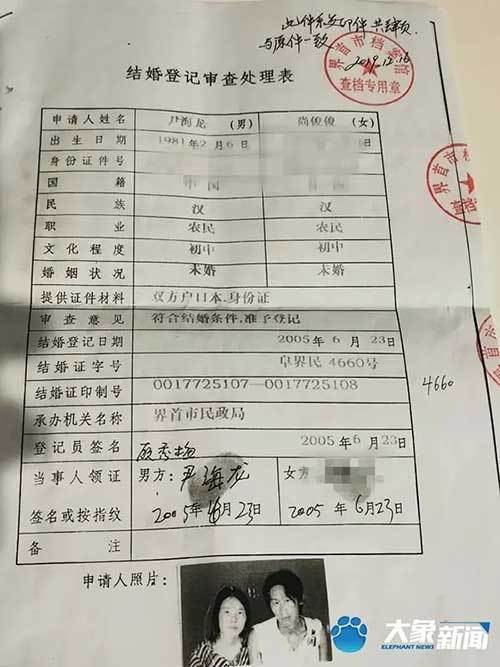 此件系复印件 共肆页
与原件一致
2019.12.16
界首市档案馆
查档专用章
结婚登记审查处理表
申请人姓名 尹海龙 (男) 尚俊俊 (女)
出生日期 1981年2月6日
身份证件号
国籍 中国
民族 汉 汉
职业 农民 农民
文化程度 初中 初中
婚姻状况 未婚 未婚
提供证件材料 双方户口本.身份证
审查意见 符合结婚条件,准予登记
结婚登记日期 2005年6月23日
结婚证字号 阜界民4660号
4660
结婚证印制号 0017725107—0017725108
承办机关名称 界首市民政局
登记员签名 2005年6月23日
当事人领证 男方: 尹海龙 女方
签名或按指纹 2005年6月23日 2005年6月23日
备注
申请人照片:
大象新闻
ELEPHANT NEWS